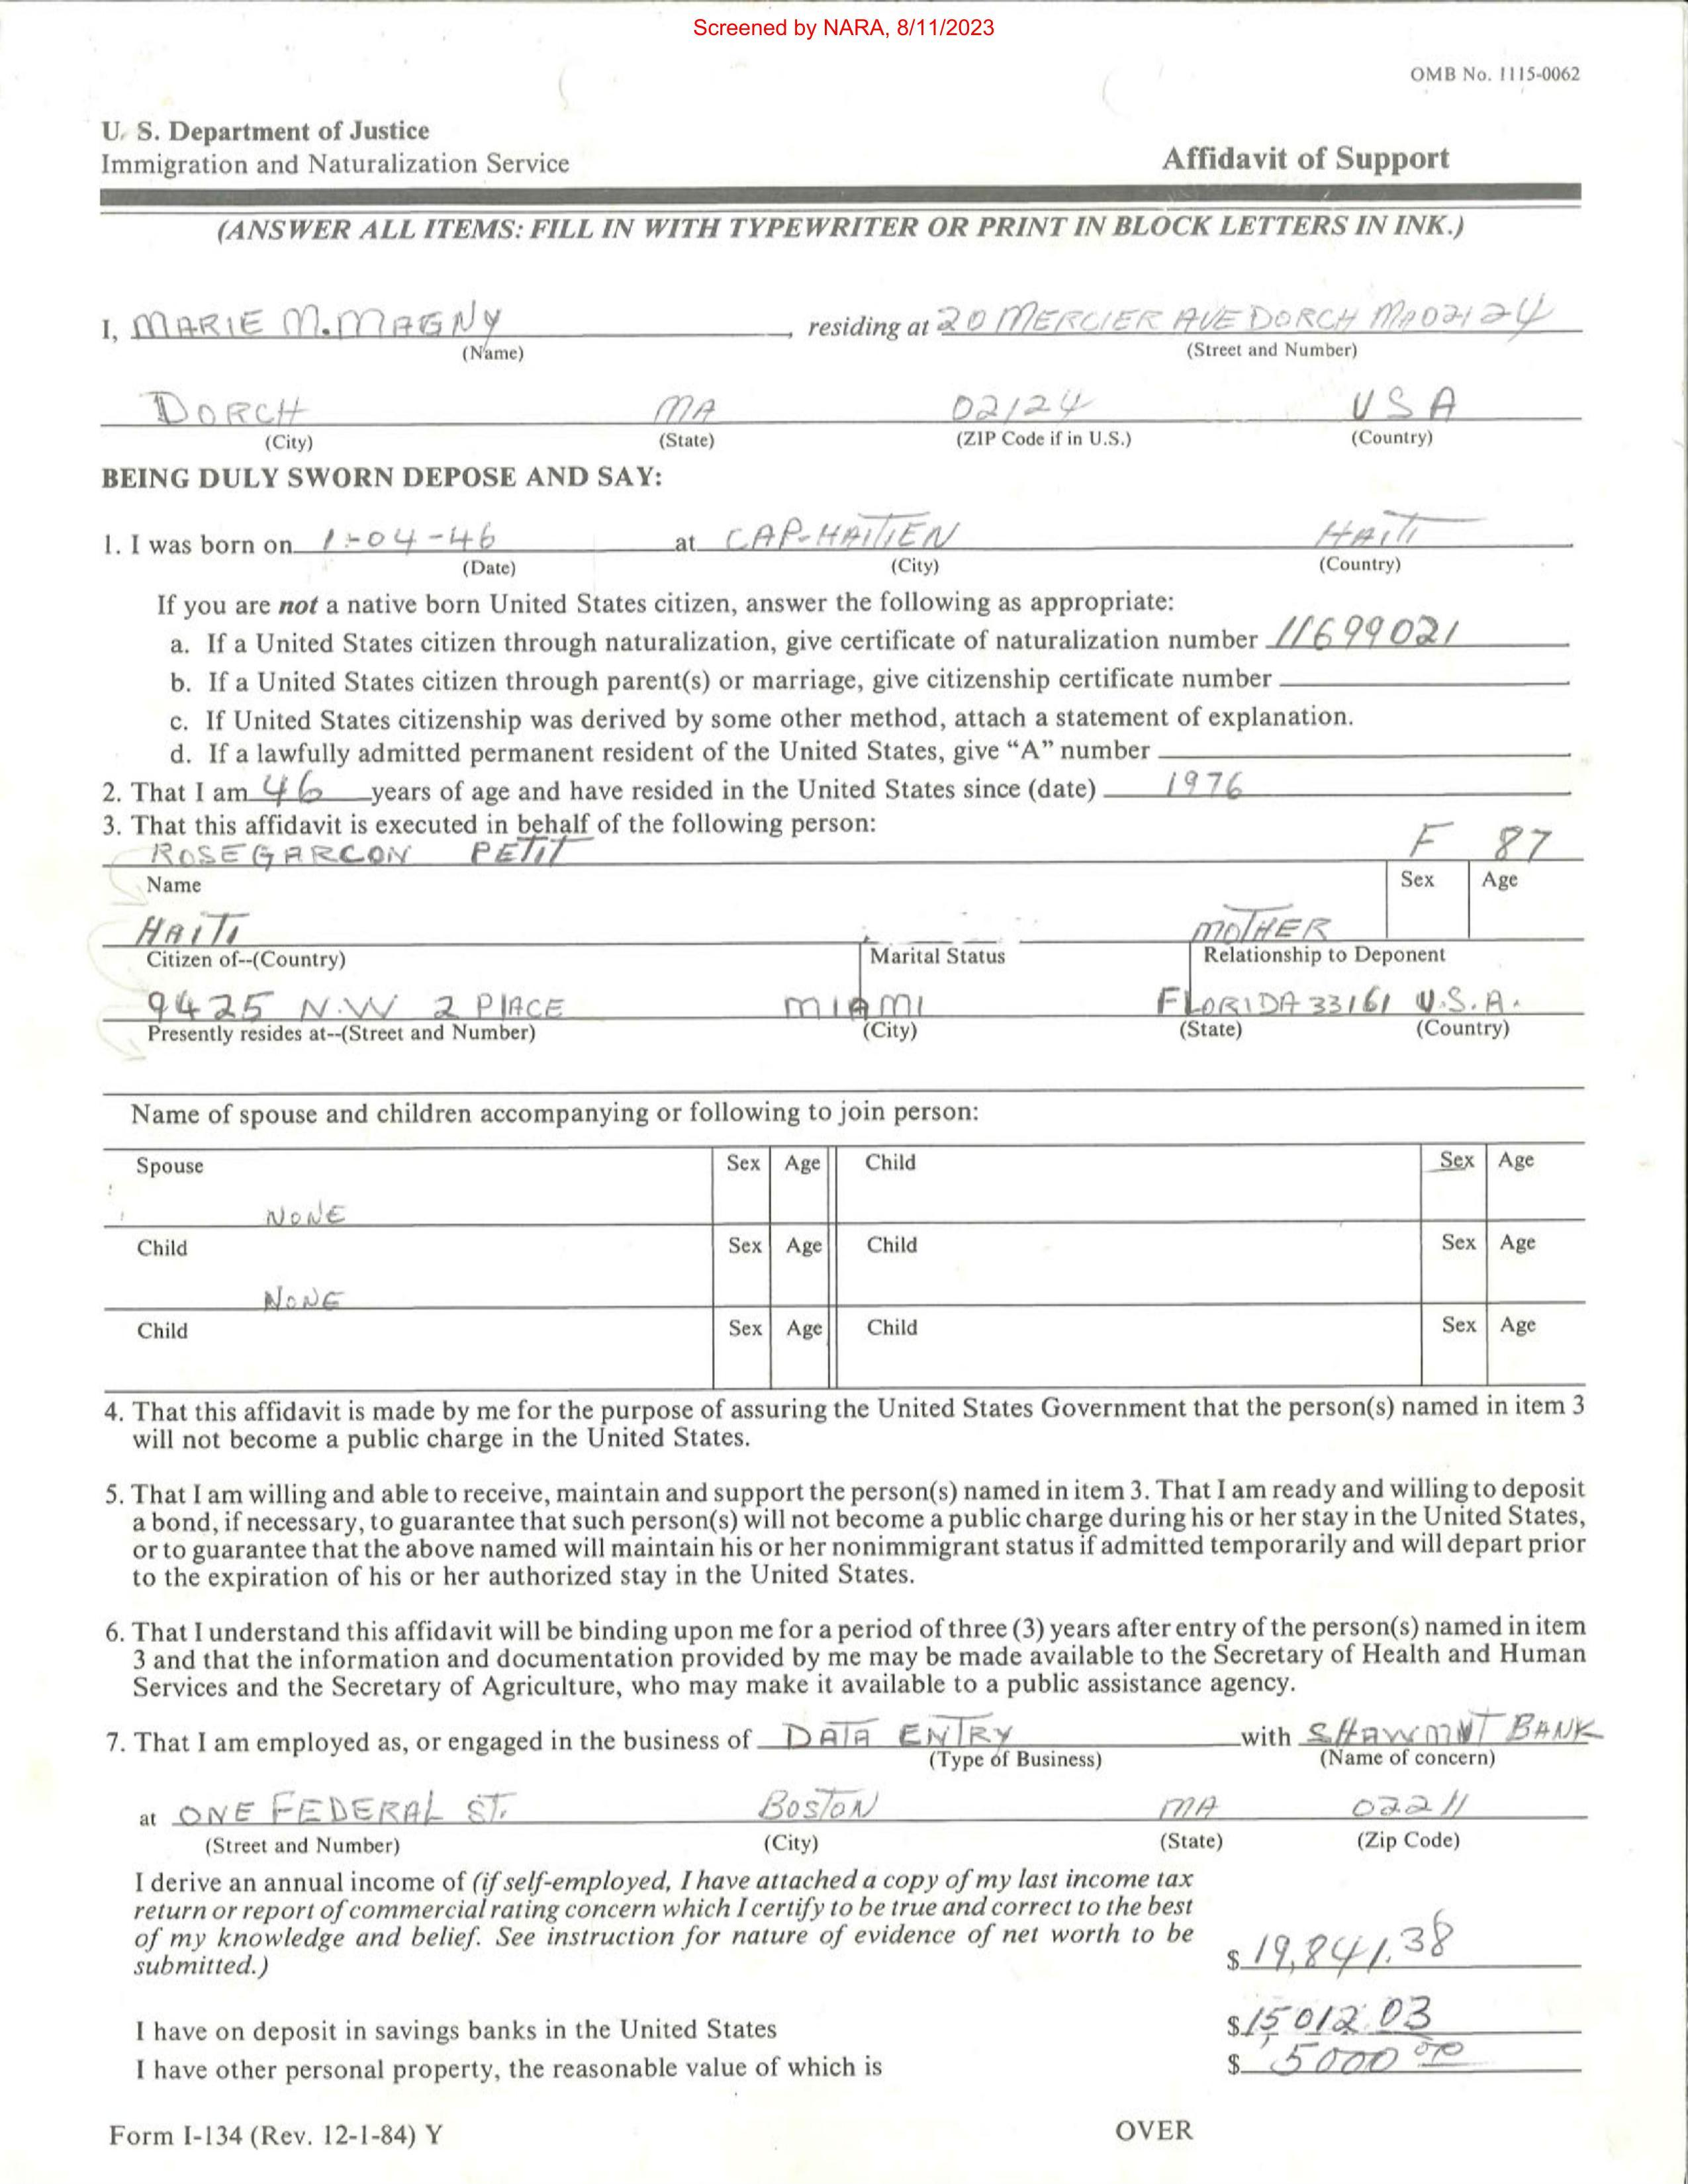 Screened by NARA, 8/11/2023
OMB No. 1115-0062
U. S. Department of Justice
Immigration and Naturalization Service
Affidavit of Support
(ANSWER ALL ITEMS: FILL IN WITH TYPEWRITER OR PRINT IN BLOCK LETTERS IN INK.)
I, MARIE M. MAGNY, residing at 20 MERCIER AVE DORCH MA 02124
(Name) (Street and Number)
DORCH MA 02124 USA
(City) (State) (ZIP Code if in U.S.) (Country)
BEING DULY SWORN DEPOSE AND SAY:
1. I was born on 1-04-46 at CAP-HAITIEN HAITI
(Date) (City) (Country)
If you are not a native born United States citizen, answer the following as appropriate:
a. If a United States citizen through naturalization, give certificate of naturalization number 11699021
b. If a United States citizen through parent(s) or marriage, give citizenship certificate number
c. If United States citizenship was derived by some other method, attach a statement of explanation.
d. If a lawfully admitted permanent resident of the United States, give “A” number
2. That I am 46 years of age and have resided in the United States since (date) 1976
3. That this affidavit is executed in behalf of the following person:
ROSE GARCON PETIT F 87
Name Sex Age
HAITI MOTHER
Citizen of--(Country) Marital Status Relationship to Deponent
9425 N.W 2 PLACE MIAMI FLORIDA 33161 U.S.A.
Presently resides at--(Street and Number) (City) (State) (Country)
Name of spouse and children accompanying or following to join person:
Spouse Sex Age Child Sex Age
NONE
Child Sex Age Child Sex Age
NONE
Child Sex Age Child Sex Age
4. That this affidavit is made by me for the purpose of assuring the United States Government that the person(s) named in item 3
will not become a public charge in the United States.
5. That I am willing and able to receive, maintain and support the person(s) named in item 3. That I am ready and willing to deposit
a bond, if necessary, to guarantee that such person(s) will not become a public charge during his or her stay in the United States,
or to guarantee that the above named will maintain his or her nonimmigrant status if admitted temporarily and will depart prior
to the expiration of his or her authorized stay in the United States.
6. That I understand this affidavit will be binding upon me for a period of three (3) years after entry of the person(s) named in item
3 and that the information and documentation provided by me may be made available to the Secretary of Health and Human
Services and the Secretary of Agriculture, who may make it available to a public assistance agency.
7. That I am employed as, or engaged in the business of DATA ENTRY with SHAWMNT BANK
(Type of Business) (Name of concern)
at ONE FEDERAL ST. BOSTON MA 02211
(Street and Number) (City) (State) (Zip Code)
I derive an annual income of (if self-employed, I have attached a copy of my last income tax
return or report of commercial rating concern which I certify to be true and correct to the best
of my knowledge and belief. See instruction for nature of evidence of net worth to be
submitted.) $ 19,841.38
I have on deposit in savings banks in the United States $ 15,012.03
I have other personal property, the reasonable value of which is $ 5000 00
Form I-134 (Rev. 12-1-84) Y OVER